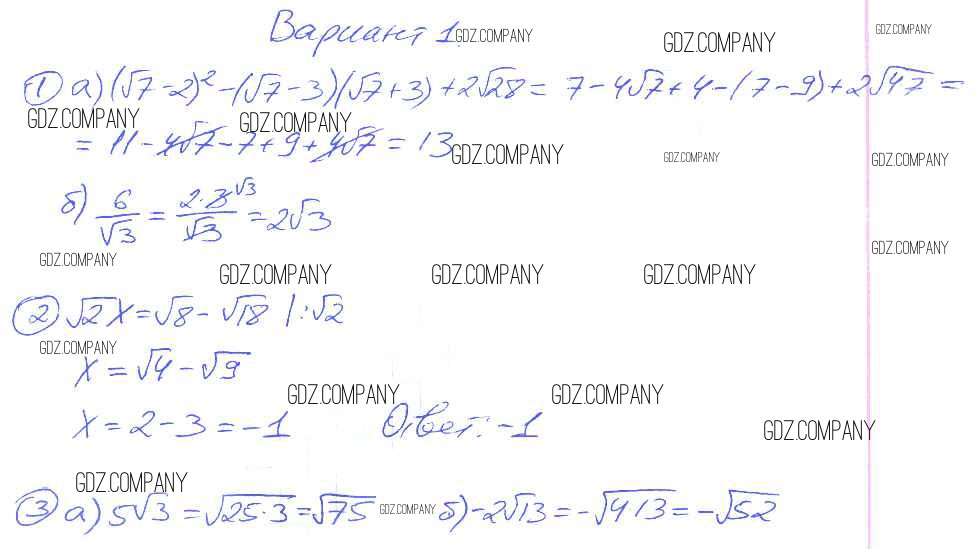 Вариант 1. GDZ.COMPANY GDZ.COMPANY GDZ.COMPANY
① а) (√7 - 2)² - (√7 - 3)(√7 + 3) + 2√28 = 7 - 4√7 + 4 - (7 - 9) + 2√4·7 =
GDZ.COMPANY GDZ.COMPANY
= 11 - 4√7 - 7 + 9 + 4√7 = 13 GDZ.COMPANY GDZ.COMPANY GDZ.COMPANY
б) 6/√3 = 2·3^√3/√3 = 2√3
GDZ.COMPANY GDZ.COMPANY
GDZ.COMPANY GDZ.COMPANY GDZ.COMPANY
② √2 x = √8 - √18 | : √2
GDZ.COMPANY
x = √4 - √9
GDZ.COMPANY GDZ.COMPANY
x = 2 - 3 = -1 Ответ: -1 GDZ.COMPANY
GDZ.COMPANY
③ а) 5√3 = √25·3 = √75 GDZ.COMPANY б) -2√13 = -√4·13 = -√52